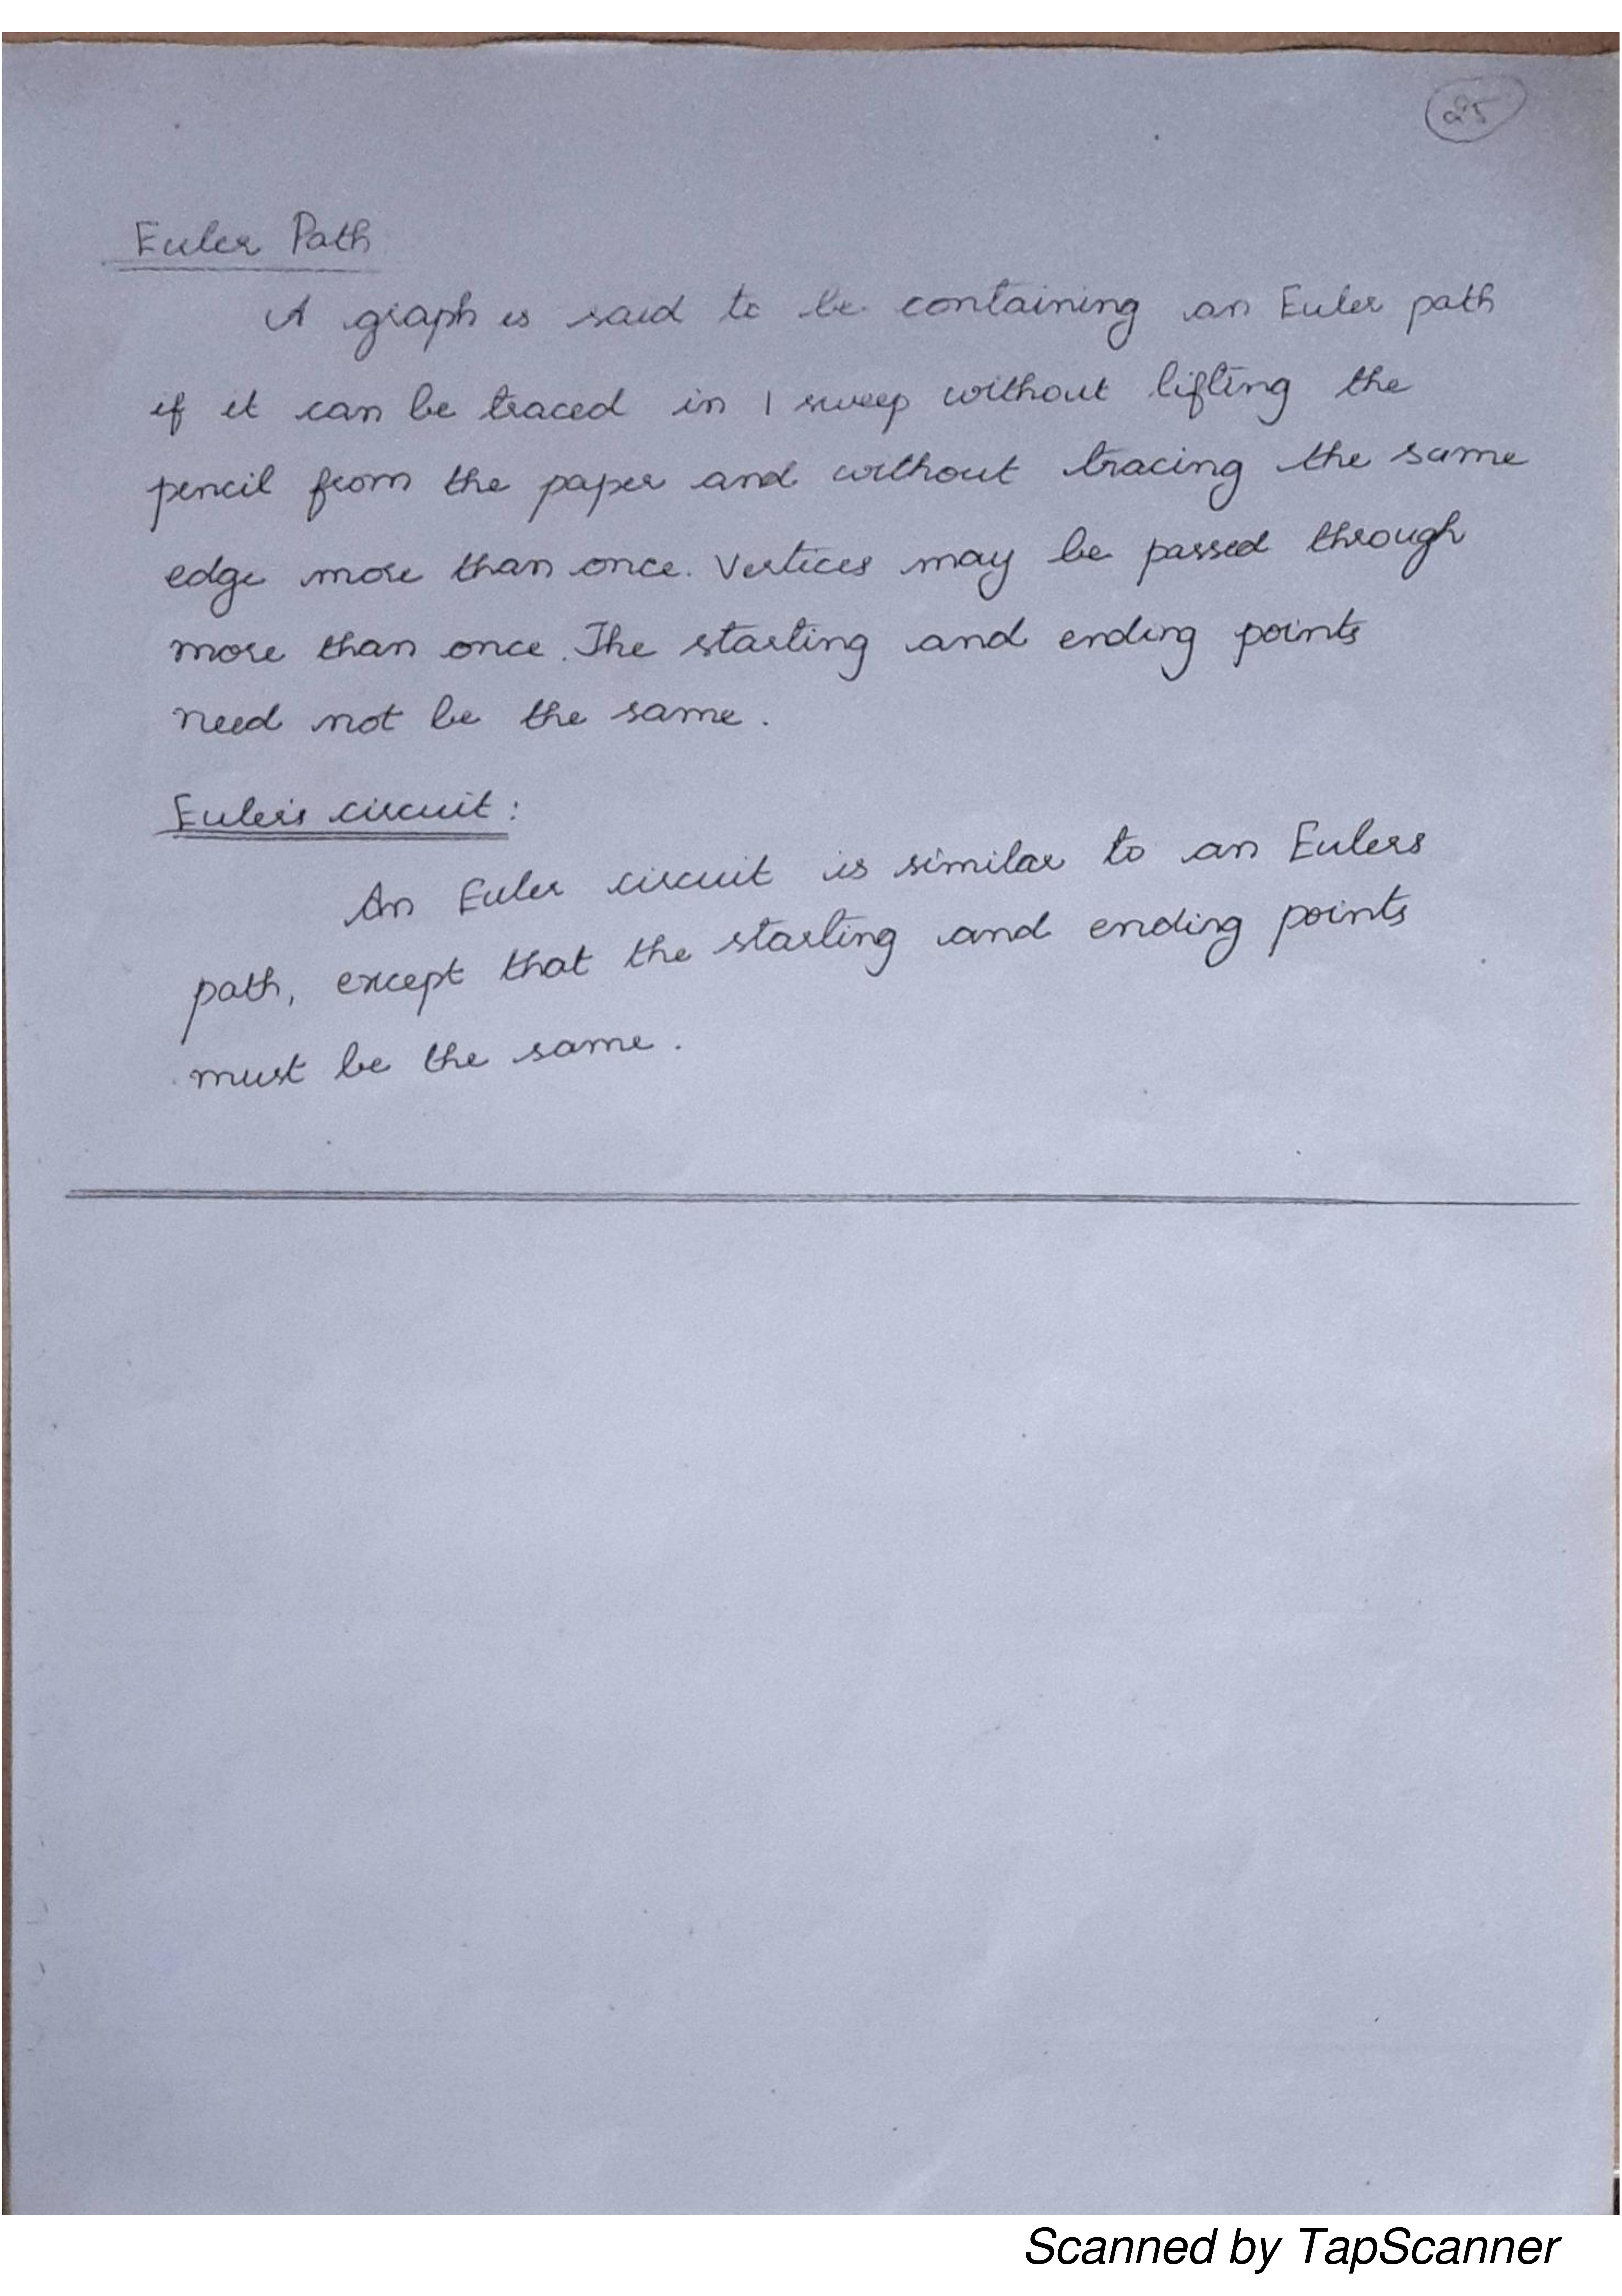 25
Euler Path
A graph is said to be containing an Euler path
if it can be traced in 1 sweep without lifting the
pencil from the paper and without tracing the same
edge more than once. Vertices may be passed through
more than once. The starting and ending points
need not be the same.
Euler's circuit:
An Euler circuit is similar to an Eulers
path, except that the starting and ending points
must be the same.
Scanned by TapScanner